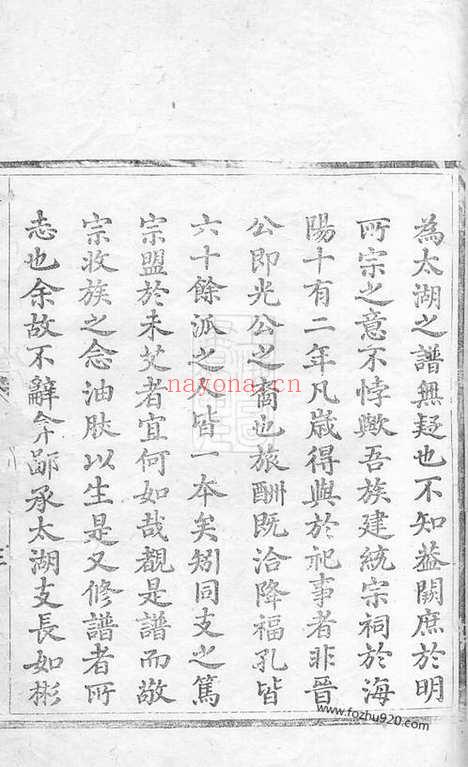 為太湖之譜無疑也不知蓋闕庶於明
所宗之意不悖歟吾族建統宗祠於海
陽十有二年凡歲得與於祀事者非晉
公即光公之裔也旅酬既洽降福孔皆
六十餘派之人皆一本矣矧同支之篤
宗盟於未艾者宜何如哉覩是譜而敬
宗收族之念油肰以生是又修譜者所
志也余故不辭弁鄙承太湖支長如彬
nayona.cn
www.fozhu920.com